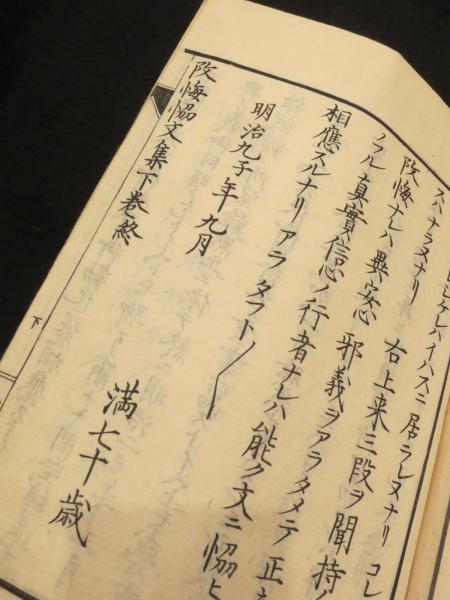 ヒケレハイハスニ居ラレヌナリ コレ
改悔ナレハ異安心邪義ヲアラタメテ正
スハナラヌナリ 右上来三段ヲ聞持
スル真實信心ノ行者ナレハ能ク文ニ恊ヒ
相應スルナリ アラタフト〱
明治九子年九月
満七十歳
改悔恊文集下巻終
下